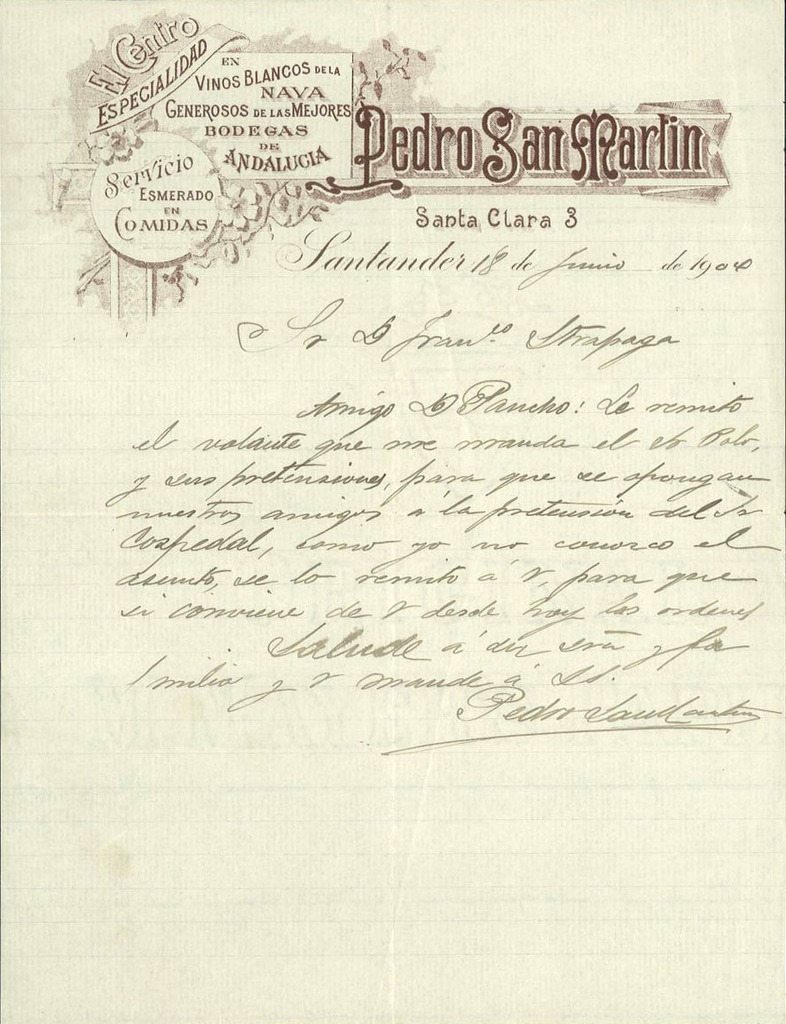 El Centro
ESPECIALIDAD
EN
VINOS BLANCOS DE LA
NAVA
GENEROSOS DE LAS MEJORES
BODEGAS
DE
ANDALUCIA
Servicio
ESMERADO
EN
COMIDAS
Pedro San Martin
Santa Clara 3
Santander 18 de Junio de 1904
Sr D Franco. Strapaga
Amigo D Pancho: Le remito
el volante que me manda el Sr Polo,
y sus pretensiones, para que se opongan
nuestros amigos á la pretensión del Sr
Cospedal, como yo no conozco el
asunto, se lo remito á V, para que
si conviene de V desde hoy las ordenes
Salude á su Sra y fa
milia y V mande á SS.
Pedro SanMartin